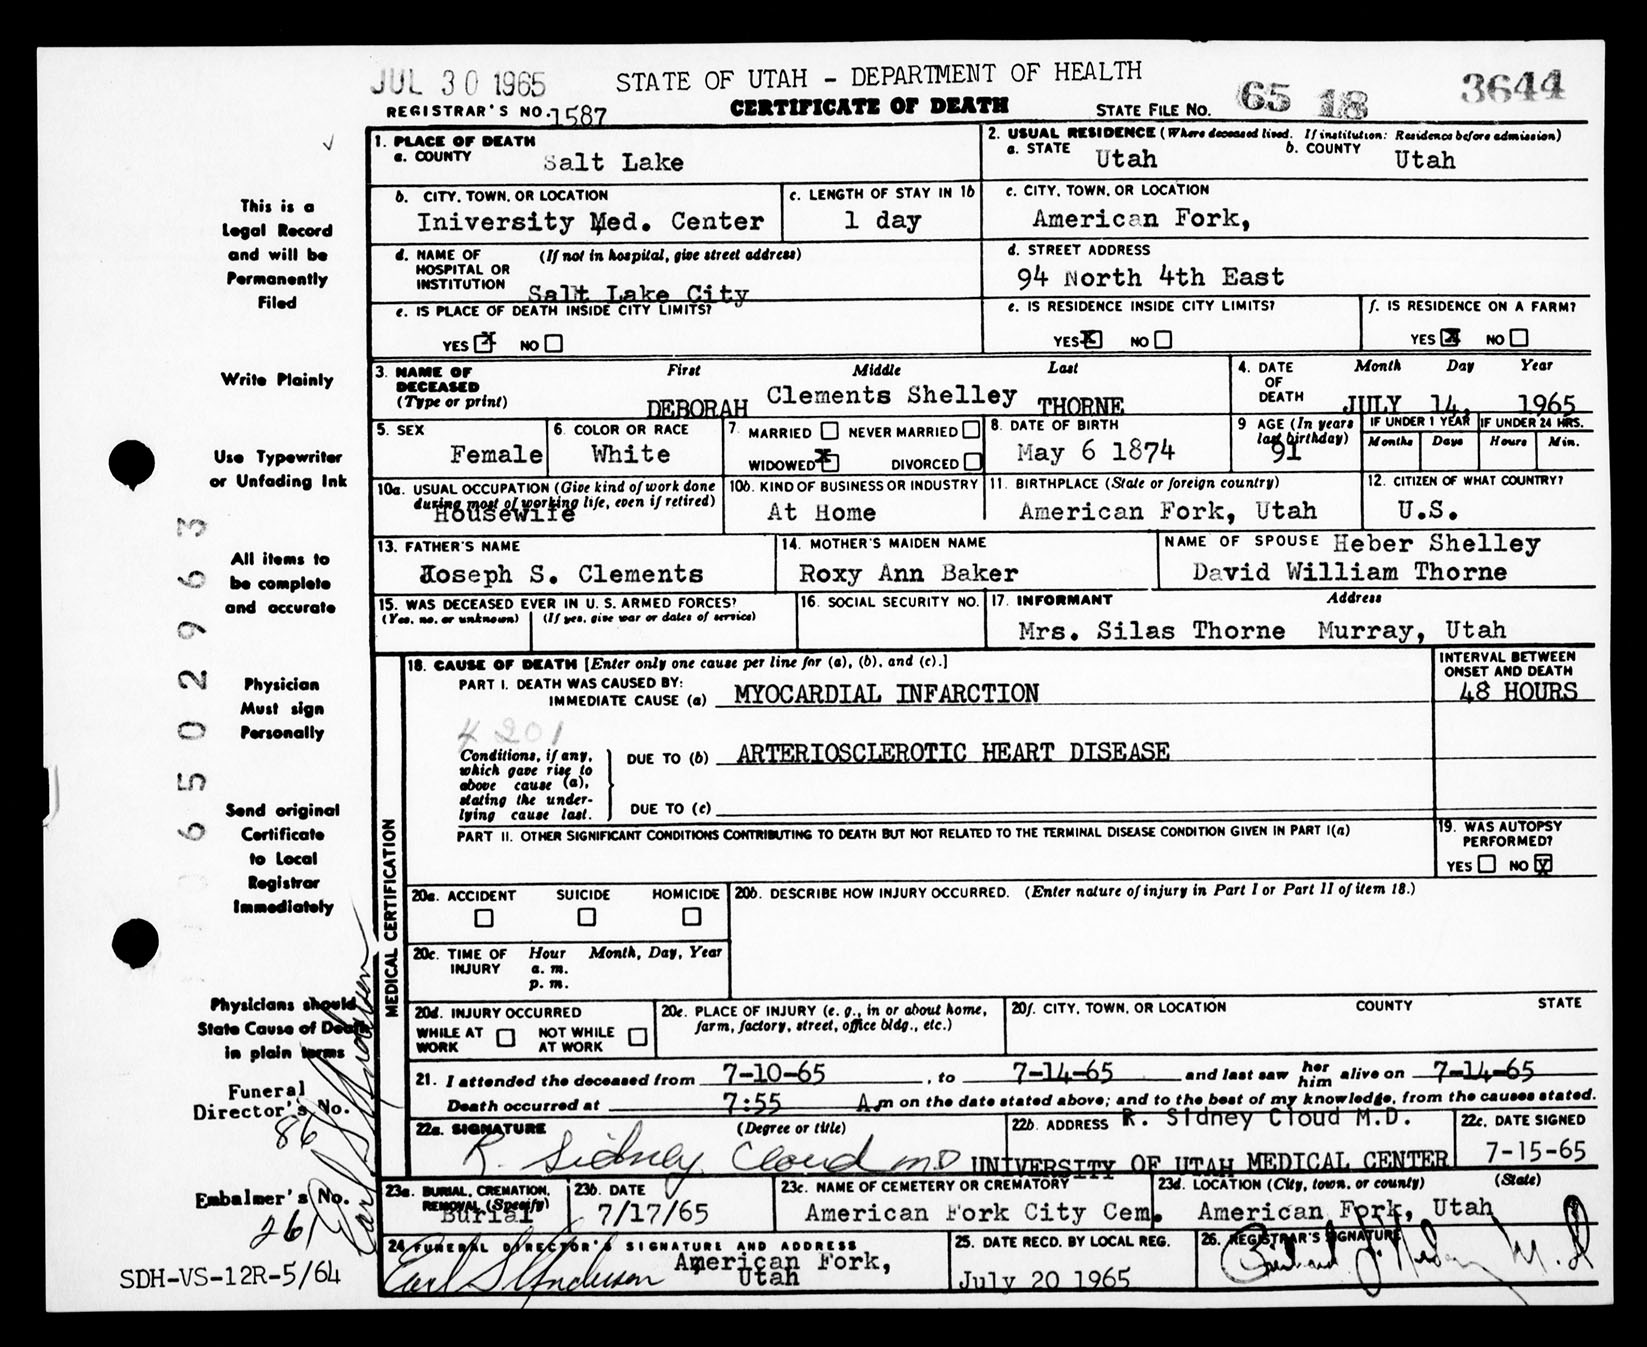 JUL 30 1965 STATE OF UTAH - DEPARTMENT OF HEALTH 65 18 3644
REGISTRAR'S NO. 1587 CERTIFICATE OF DEATH STATE FILE NO.
1. PLACE OF DEATH
a. COUNTY Salt Lake
2. USUAL RESIDENCE (Where deceased lived. If institution: Residence before admission)
a. STATE Utah b. COUNTY Utah
b. CITY, TOWN, OR LOCATION
Iniversity Med. Center
c. LENGTH OF STAY IN 1b
1 day
c. CITY, TOWN, OR LOCATION
American Fork,
d. NAME OF HOSPITAL OR INSTITUTION (If not in hospital, give street address)
Salt Lake City
d. STREET ADDRESS
94 North 4th East
e. IS PLACE OF DEATH INSIDE CITY LIMITS?
YES X NO
e. IS RESIDENCE INSIDE CITY LIMITS?
YES X NO
f. IS RESIDENCE ON A FARM?
YES X NO
3. NAME OF DECEASED (Type or print) First Middle Last
DEBORAH Clements Shelley THORNE
4. DATE OF DEATH Month Day Year
JULY 14, 1965
5. SEX
Female
6. COLOR OR RACE
White
7. MARRIED NEVER MARRIED
WIDOWED X DIVORCED
8. DATE OF BIRTH
May 6 1874
9 AGE (In years last birthday)
91
IF UNDER 1 YEAR
Months Days
IF UNDER 24 HRS.
Hours Min.
10a. USUAL OCCUPATION (Give kind of work done during most of working life, even if retired)
Housewife
10b. KIND OF BUSINESS OR INDUSTRY
At Home
11. BIRTHPLACE (State or foreign country)
American Fork, Utah
12. CITIZEN OF WHAT COUNTRY?
U.S.
13. FATHER'S NAME
Joseph S. Clements
14. MOTHER'S MAIDEN NAME
Roxy Ann Baker
NAME OF SPOUSE Heber Shelley
David William Thorne
15. WAS DECEASED EVER IN U. S. ARMED FORCES?
(Yes, no, or unknown) (If yes, give war or dates of service)
16. SOCIAL SECURITY NO.
17. INFORMANT Address
Mrs. Silas Thorne Murray, Utah
MEDICAL CERTIFICATION
18. CAUSE OF DEATH [Enter only one cause per line for (a), (b), and (c).]
INTERVAL BETWEEN ONSET AND DEATH
PART I. DEATH WAS CAUSED BY:
IMMEDIATE CAUSE (a) MYOCARDIAL INFARCTION 48 HOURS
4201
Conditions, if any, which gave rise to above cause (a), stating the underlying cause last.
DUE TO (b) ARTERIOSCLEROTIC HEART DISEASE
DUE TO (c)
PART II. OTHER SIGNIFICANT CONDITIONS CONTRIBUTING TO DEATH BUT NOT RELATED TO THE TERMINAL DISEASE CONDITION GIVEN IN PART I(a)
19. WAS AUTOPSY PERFORMED?
YES NO X
20a. ACCIDENT SUICIDE HOMICIDE
20b. DESCRIBE HOW INJURY OCCURRED. (Enter nature of injury in Part I or Part II of item 18.)
20c. TIME OF INJURY Hour Month, Day, Year
a. m.
p. m.
20d. INJURY OCCURRED
WHILE AT WORK NOT WHILE AT WORK
20e. PLACE OF INJURY (e. g., in or about home, farm, factory, street, office bldg., etc.)
20f. CITY, TOWN, OR LOCATION COUNTY STATE
21. I attended the deceased from 7-10-65, to 7-14-65 and last saw her him alive on 7-14-65
Death occurred at 7:55 A.m on the date stated above; and to the best of my knowledge, from the causes stated.
22a. SIGNATURE (Degree or title)
R. Sidney Cloud MD
22b. ADDRESS R. Sidney Cloud M.D.
UNIVERSITY OF UTAH MEDICAL CENTER
22c. DATE SIGNED
7-15-65
23a. BURIAL, CREMATION, REMOVAL (Specify)
Burial
23b. DATE
7/17/65
23c. NAME OF CEMETERY OR CREMATORY
American Fork City Cem.
23d. LOCATION (City, town, or county) (State)
American Fork, Utah
24 FUNERAL DIRECTOR'S SIGNATURE AND ADDRESS
Earl S Anderson American Fork, Utah
25. DATE RECD. BY LOCAL REG.
July 20 1965
26. REGISTRAR'S SIGNATURE
M.D.
This is a
Legal Record
and will be
Permanently
Filed
Write Plainly
Use Typewriter
or Unfading Ink
All items to
be complete
and accurate
Physician
Must sign
Personally
Send original
Certificate
to Local
Registrar
Immediately
Physicians should
State Cause of Death
in plain terms
Funeral
Director's No.
86
Embalmer's No.
261
Earl S Anderson
SDH-VS-12R-5/64
6502963